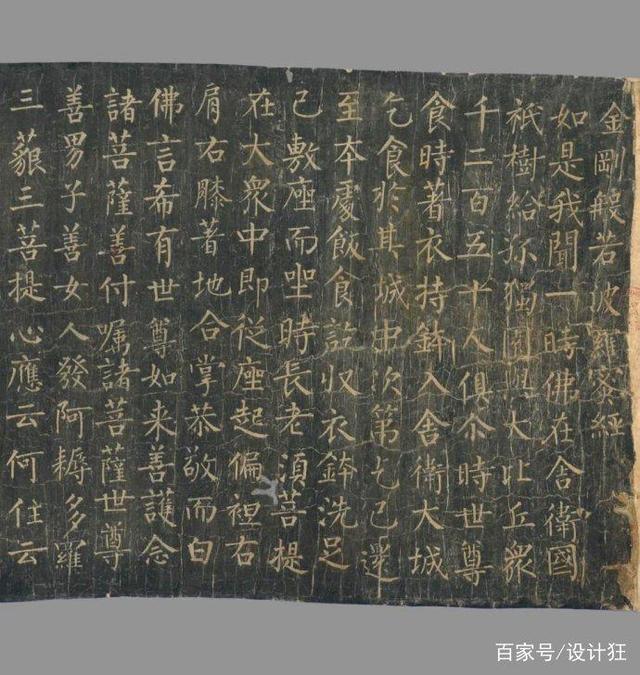 金剛般若波羅蜜經
如是我聞一時佛在舍衛國
祇樹給孤獨園與大比丘衆
千二百五十人俱尒時世尊
食時著衣持鉢入舍衛大城
乞食於其城中次第乞已還
至本處飯食訖収衣鉢洗足
已敷座而坐時長老湏菩提
在大衆中即從座起偏袒右
肩右膝著地合掌恭敬而白
佛言希有世尊如来善護念
諸菩薩善付嘱諸菩薩世尊
善男子善女人發阿耨多羅
三藐三菩提心應云何住云
百家号/设计狂